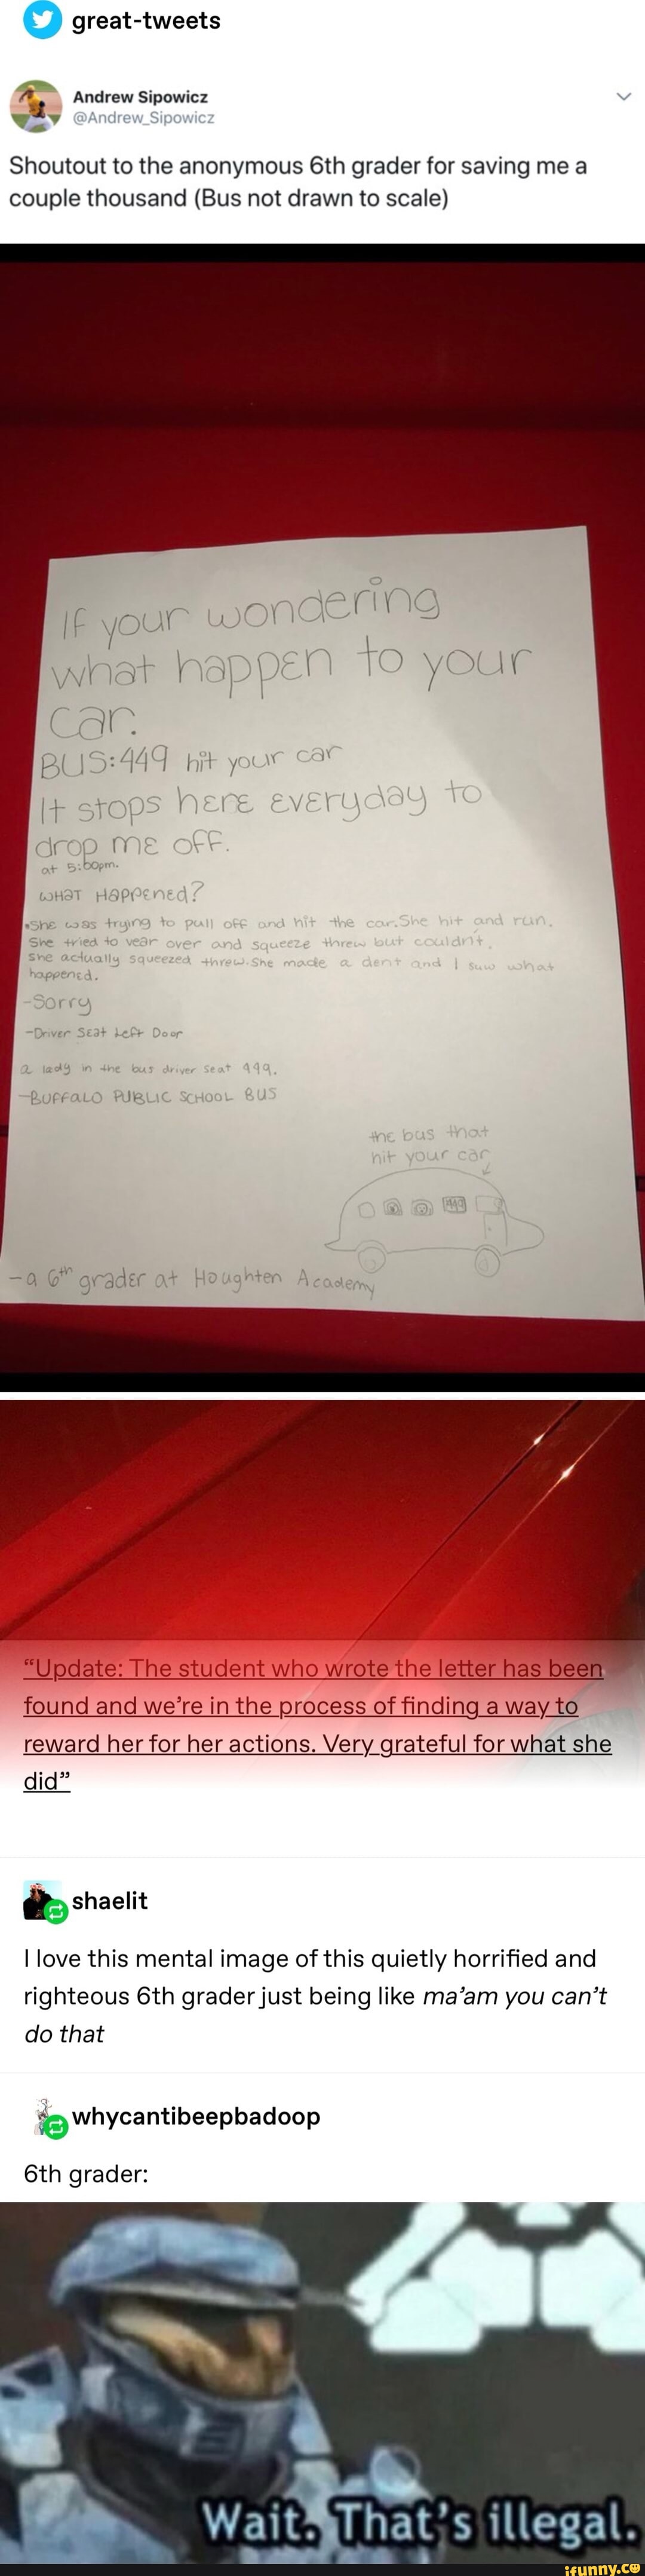 great-tweets
Andrew Sipowicz
@Andrew_Sipowicz
Shoutout to the anonymous 6th grader for saving me a
couple thousand (Bus not drawn to scale)
If your wondering
what happen to your
car.
BUS:449 hit your car
It stops here everyday to
drop me off.
at 5:00pm.
WHAT HAPPENEd?
•She was trying to pull off and hit the car. She hit and run.
She tried to vear over and squeeze threw but couldn't.
She actually squeezed threw. She made a dent and I saw what
happened.
-Sorry
-Driver Seat Left Door
a lady in the bus driver seat 449.
-BUFFaLO PUBLIC SCHOOL BUS
the bus that
hit your car
449
-a 6th grader at Houghten Academy
“Update: The student who wrote the letter has been
found and we’re in the process of finding a way to
reward her for her actions. Very grateful for what she
did”
shaelit
I love this mental image of this quietly horrified and
righteous 6th grader just being like ma’am you can’t
do that
whycantibeepbadoop
6th grader:
Wait. That's illegal.
ifunny.co